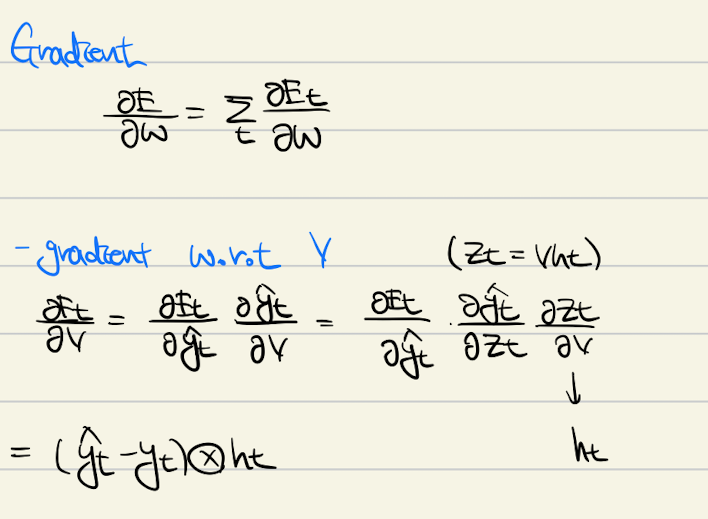 Gradient
∂E/∂W = Σ_t ∂E_t/∂W
- gradient w.r.t V (z_t = Vh_t)
∂E_t/∂V = ∂E_t/∂ŷ_t ∂ŷ_t/∂V = ∂E_t/∂ŷ_t · ∂ŷ_t/∂z_t ∂z_t/∂V
↓
h_t
= (ŷ_t - y_t) ⊗ h_t